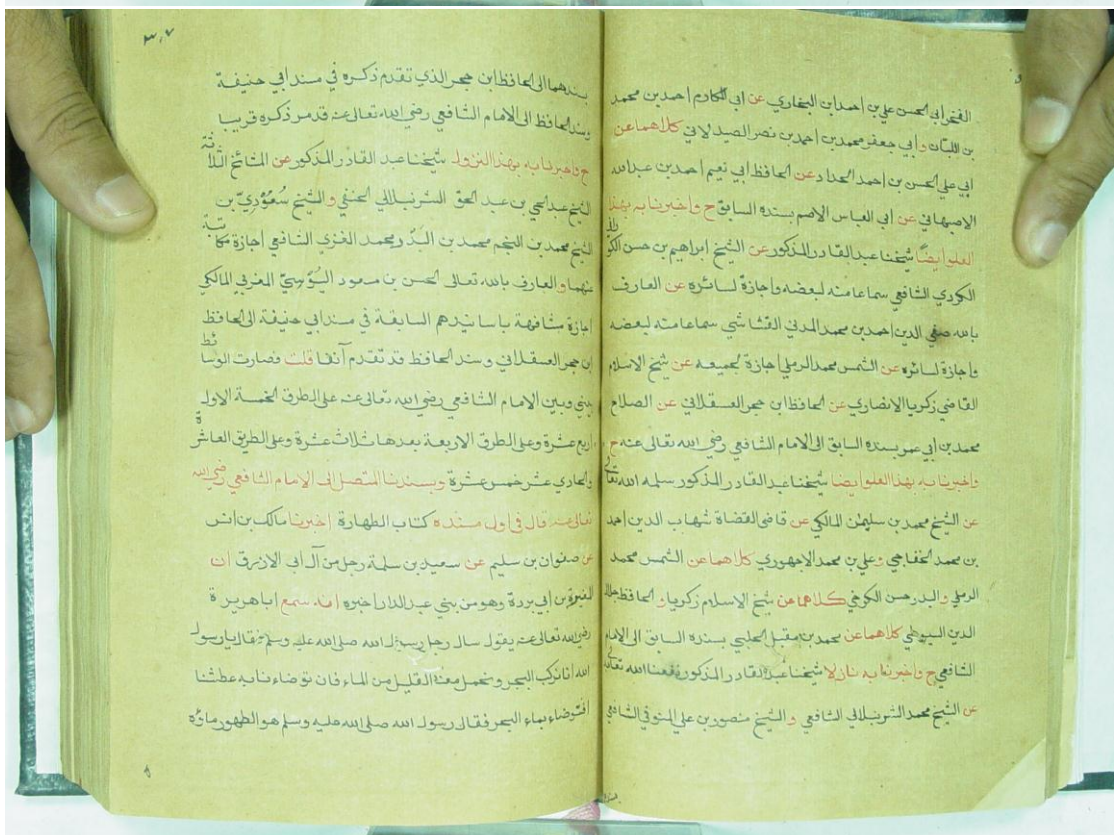 الفخر ابي الحسن علي بن احمد ابن البخاري عن ابي المكارم احمد بن محمد
بن اللبان و ابي جعفر محمد بن احمد بن نصر الصيدلاني كلاهما عن
ابي علي الحسن بن احمد الحداد عن الحافظ ابي نعيم احمد بن عبد الله
الاصبهاني عن ابي العباس الاصم بسنده السابق ح واخبرنا به بهذا
العلو ايضاً شيخنا عبد القادر المذكور عن الشيخ ابراهيم بن حسن الكوراني
الكردي الشافعي سماعا منه لبعضه واجازة لسائره عن العارف
بالله صفي الدين احمد بن محمد المدني القشاشي سماعا منه لبعضه
واجازة لسائره عن الشمس محمد الرملي اجازة لجميعه عن شيخ الاسلام
القاضي زكريا الانصاري عن الحافظ ابن حجر العسقلاني عن الصلاح
محمد بن ابي عمر بسنده السابق الى الامام الشافعي رضي الله تعالى عنه ح
واخبرنا به بهذا العلو ايضا شيخنا عبد القادر المذكور سلمه الله تعالى
عن الشيخ محمد بن سليمن المالكي عن قاضي القضاة شهاب الدين احمد
بن محمد الخفاجي وعلي بن محمد الاجهوري كلاهما عن الشمس محمد
الرملي والبدر حسن الكرخي كلاهما عن شيخ الاسلام زكريا و الحافظ جلال
الدين السيوطي كلاهما عن محمد بن مقبل الحلبي بسنده السابق الى الامام
الشافعي ح واخبرنا به نازلا شيخنا عبد القادر المذكور نفعنا الله تعالى
عن الشيخ محمد الشرنبلالي الشافعي و الشيخ منصور بن علي المنوفي الشافعي
٣٠٧
بسندهما الى الحافظ ابن حجر الذي تقدم ذكره في مسند ابي حنيفة
وسند الحافظ الى الامام الشافعي رضي الله تعالى عنه قد مر ذكره قريبا
ح واخبرنا به بهذا النزول شيخنا عبد القادر المذكور عن المشائخ الثلاثة
الشيخ عبد الحي بن عبد الحق الشرنبلالي الحنفي و الشيخ سُعُوْدِيّ بن
الشيخ محمد بن النجم محمد بن البدر محمد الغزي الشافعي اجازة مكاتبة
عنهما و العارف بالله تعالى الحسن بن مسعود اليُوْسِيّ المغربي المالكي
اجازة مشافهة باسانيدهم السابقة في مسند ابي حنيفة الى الحافظ
ابن حجر العسقلاني وسند الحافظ قد تقدم آنفا قلت فصارت الوسائط
بيني وبين الامام الشافعي رضي الله تعالى عنه على الطرق الخمسة الاول
اربع عشرة وعلى الطرق الاربعة بعدها ثلاث عشرة وعلى الطريق العاشرة
والحادي عشر خمس عشرة وبسندنا المتصل الى الامام الشافعي رضي الله
تعالى عنه قال في اول مسنده كتاب الطهارة اخبرنا مالك بن انس
عن صفوان بن سليم عن سعيد بن سلمة رجل من آل ابي الازرق ان
المغيرة بن ابي بردة وهو من بني عبد الدار اخبره انه سمع ابا هريرة
رضي الله تعالى عنه يقول سال رجل رسول الله صلى الله عليه وسلم فقال يا رسول
الله انا نركب البحر ونحمل معنا القليل من الماء فان توضاءنا به عطشنا
افنتوضاء بماء البحر فقال رسول الله صلى الله عليه وسلم هو الطهور ماؤه